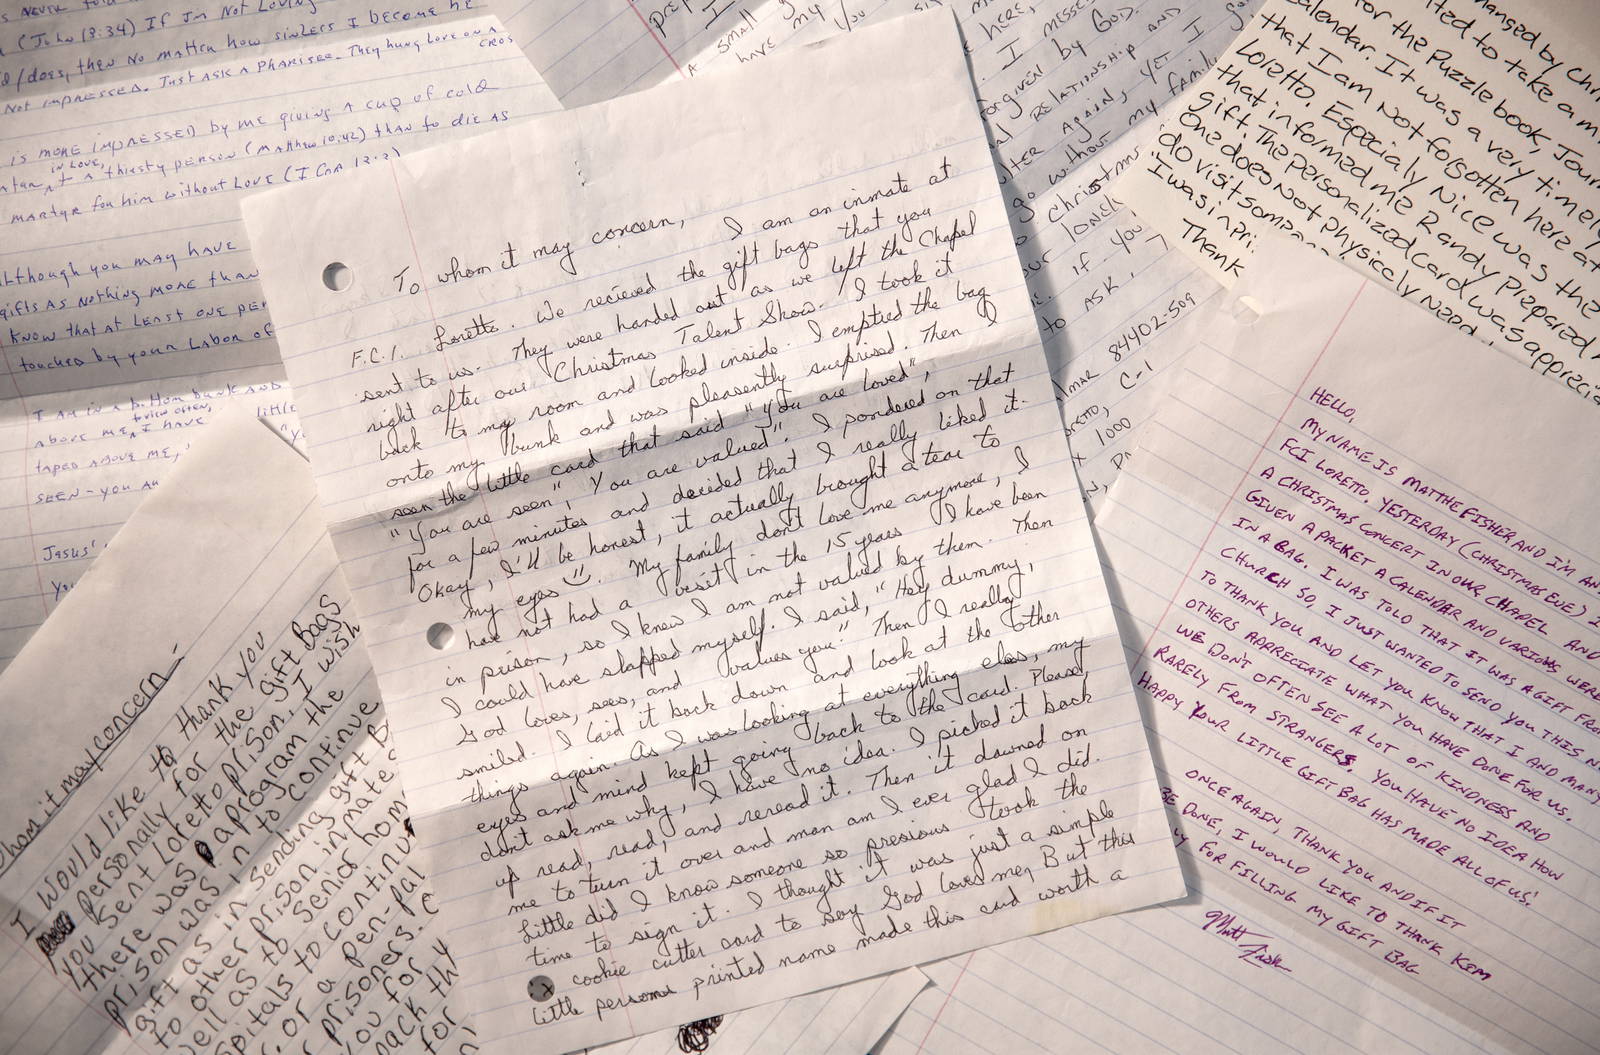 To whom it may concern,
I am an inmate at
F.C.I. Loretto. We recieved the gift bags that you
sent to us. They were handed out as we left the Chapel
right after our Christmas Talent Show. I took it
back to my room and looked inside. I emptied the bag
onto my bunk and was pleasently surprised. Then I
seen the little card that said "You are loved",
"You are seen", "You are valued". I pondered on that
for a few minutes and decided that I really liked it.
Okay, I'll be honest, it actually brought a tear to
my eyes. My family don't love me anymore, I
have not had a vesit in the 15 years I have been
in prison, so I knew I am not valued by them. Then
I could have slapped myself. I said, "Hey dummy,
God loves, sees, and values you". Then I really
smiled. I laid it back down and look at the other
things again. As I was looking at everything eles, my
eyes and mind kept going back to the card. Please
don't ask me why, I have no idea. I picked it back
up read, read, and reread it. Then it dawned on
me to turn it over and man am I ever glad I did.
Little did I know someone so presious took the
time to sign it. I thought it was just a simple
cookie cutter card to say God loves me, But this
little persons printed name made this card worth a
(John 13:34) If I'm Not Loving
/does, then No matter how sinless I become he
Not impressed. Just ask a Pharisee. They hung love on a
cros
is more impressed by me giving a cup of cold
in love,
a thirsty person (Matthew 10:42) than to die as
martyr for him without Love (I Cor 13:3)
although you may have
gifts as nothing more than
know that at least one per
touched by your labor of
I am in a bottom bunk and
above me, I have
taped above me,
seen - you a
Jesus'
whom it may concern
I would like to thank you
personally for the gift Bags
you sent Loretto prison. I wish
there was a program the
prison was in to continue
gift as in sending gift B
to other prison inmate
well as to Senior hom
spitals to continue
, or a pen-pal
prisoners. 
you for
back thy
for
A small
have my
you
here,
I messe
forgiven by God.
relationship and
again, yet I
go without my family
Christms
lonel
if you
to ask,
84402-509
C-1
1000
nanged by Chri
ited to take a m
for the Puzzle book, Jour
alendar. It was a very timely
that I am not forgotten here at
Loretto. Especially Nice was the
that informed me Randy Prepared
gift. The personalized card was apprecia
One does not physically need
do visit some
"I was in Pri
Thank
Hello,
My name is Matthe Fisher and I'm an
FCI Loretto. Yesterday (Christmas Eve) I
a Christmas concert in our chapel and
given a packet a calendar and various
in a bag. I was told that it was a gift from
church so, I just wanted to send you this n
to thank you and let you know that I and many
others appreciate what you have done for us.
We don't often see a lot of kindness and
rarely from strangers. You have no idea how
happy your little gift bag has made all of us!
Once again, thank you and if it
be done, I would like to thank Kem
for filling my gift bag
Matt Fisher